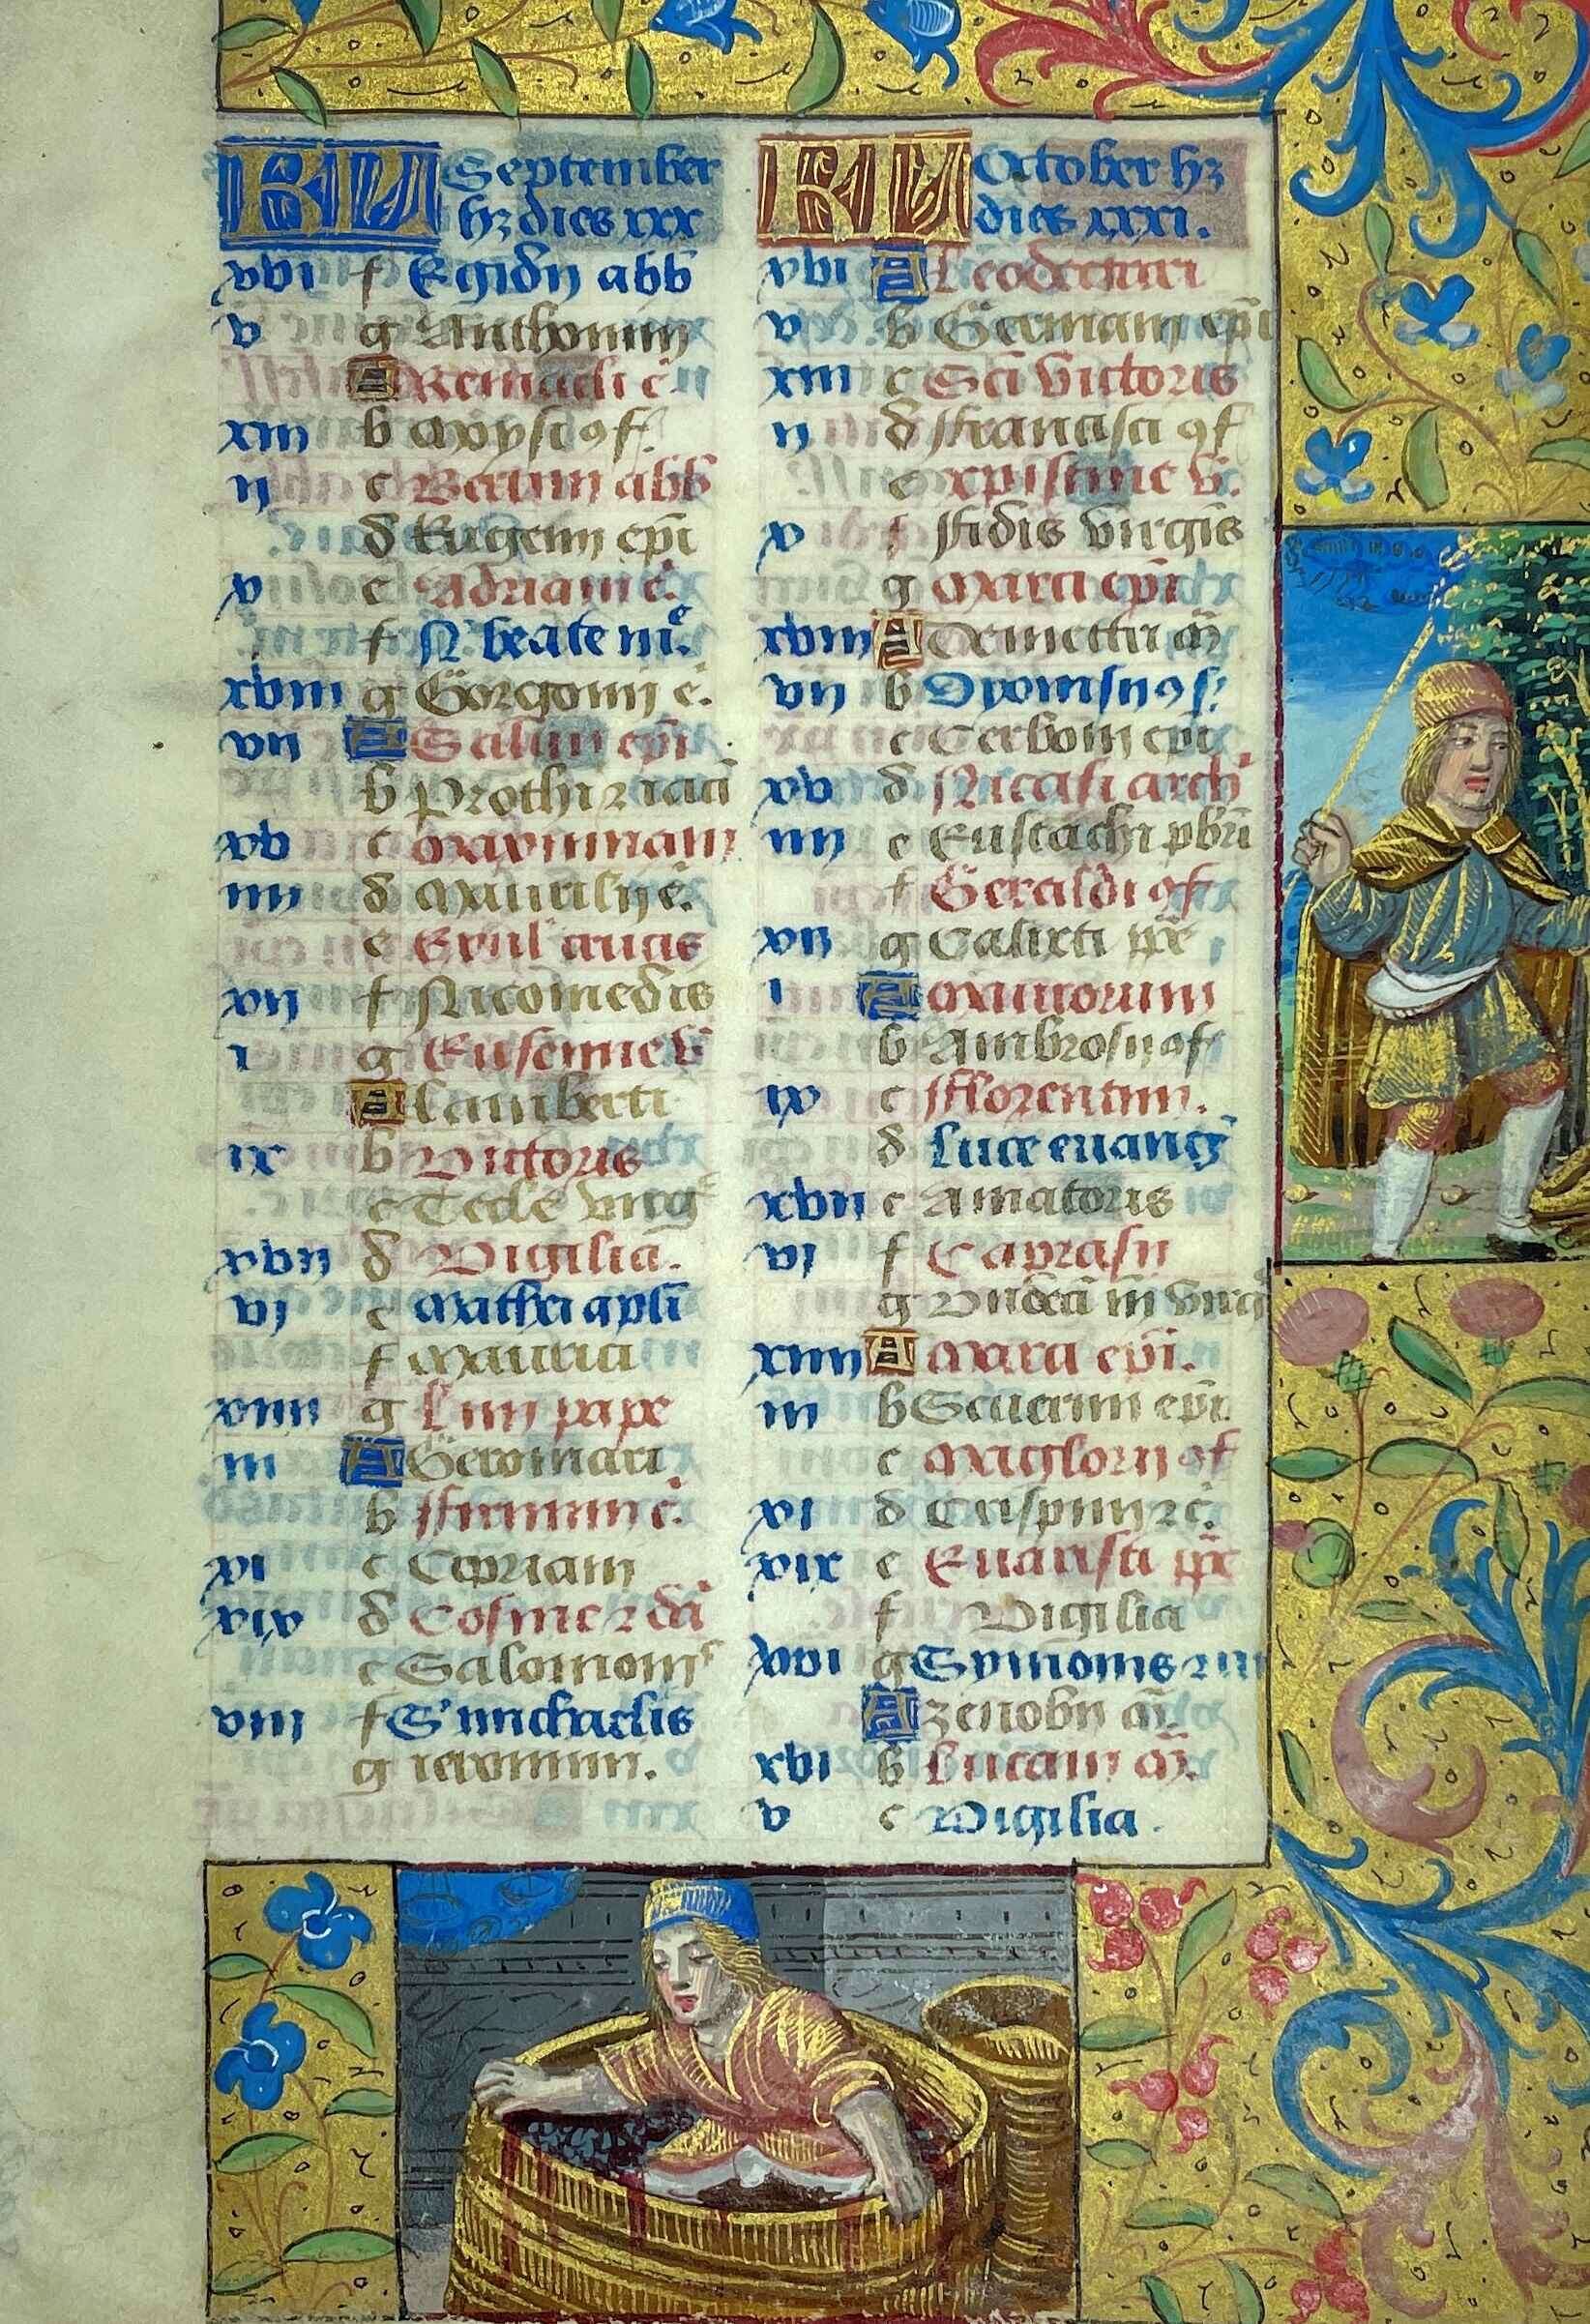 KL September
hz dies xxx
xvi f Egidii abb
v g Anthonini
A Remacli e.
xiii b Moysi 9f.
ii c Bertini abb
d Eugenii epi
x e Adriani e.
f N beate m.
xviii g Gorgonii e.
vii A Salvii epi
b Prothi 2 iaci
xv c Maximiniani
iiii d Maurilii e.
e Exul crucis
xii f Nicomedis
i g Eufemie v
A Lamberti
ix b Victoris
c Tecle virg
xvii d Vigilia.
vi e Mathei apli
f Mauricii
xiiii g Lini pape
iii A Geromari
b Firmini e.
xi c Cipriani
xix d Cosme 2 da
e Salomonis
viii f S' michaelis
g ieronimi.
KL October hz
dies xxxi.
xvi A Leodegarii
v b Germani epi
xiii c Sci Victoris
ii d Francisci 9f
e xpistine v.
x f Fidis virgis
g Marci epi
xviii A Demetrii m
vii b Dyonisii 9 s:
c Cerboni epi
xv d Nicasi arch
iiii e Eustachi pbri
f Geraldi 9f
xii g Calixti pp
i A Maurorum
b Ambrosii 9f
ix c Florentini.
d Luce evang
xvii e Amatoris
vi f Caprasii
g Undeci m virg
xiiii A Mara epi.
iii b Severini epi
c Maglorii 9f
xi d Crispini 2 c.
xix e Evaristi pp
f Vigilia
viii g Symonis 2 iu
A zenobii m
xvi b Lucani m.
v c Vigilia.